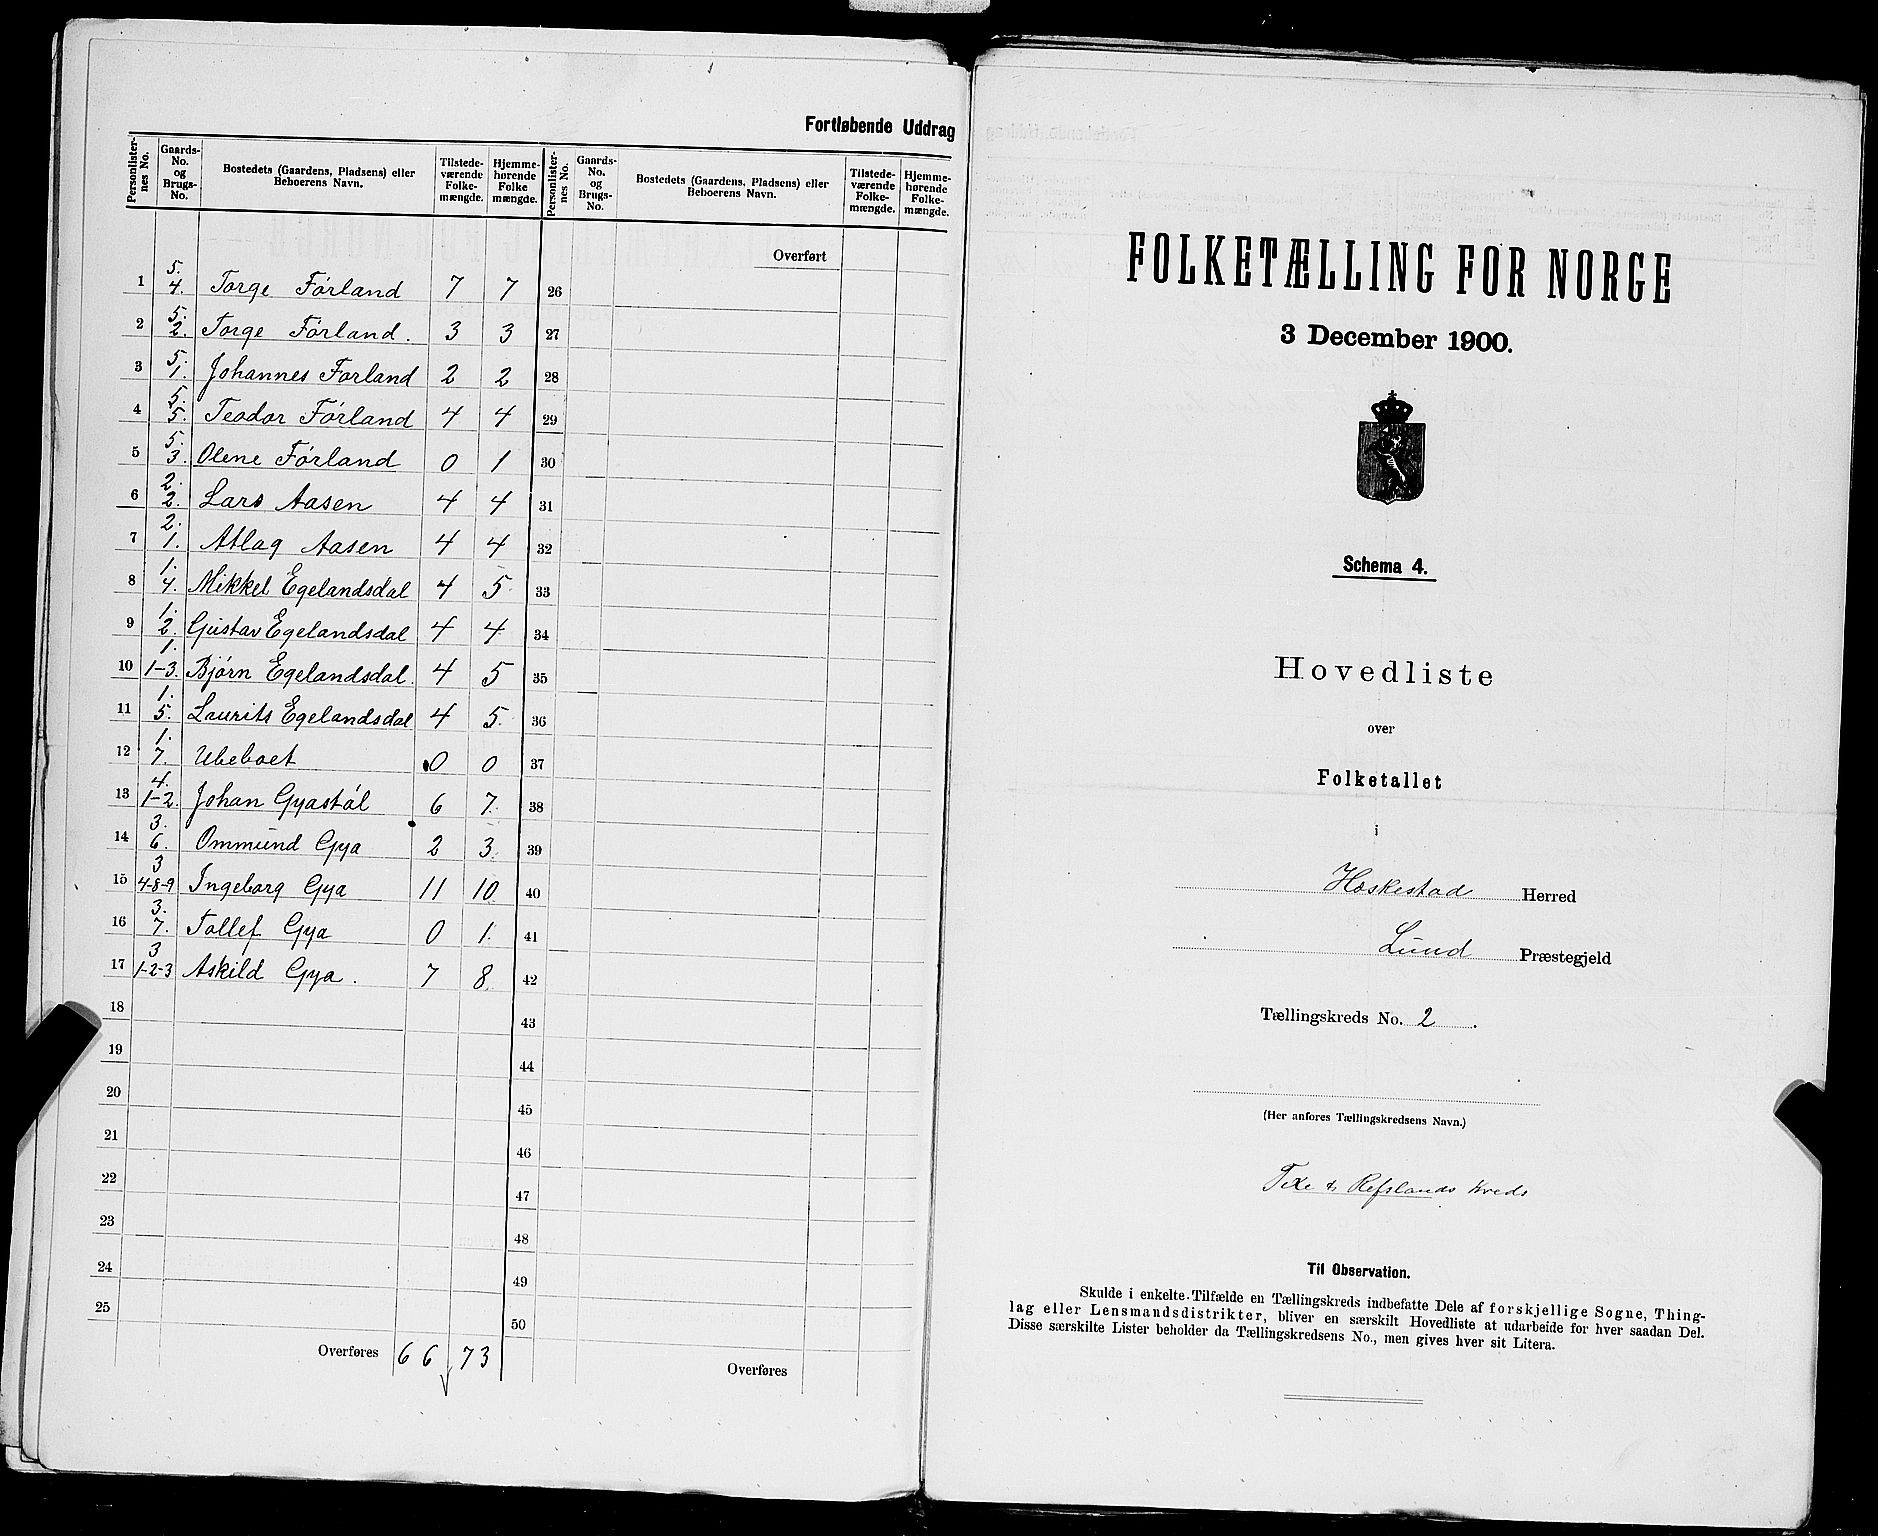 Fortløbende Uddrag
Personlister-nes No. Gaards-No. og Brugs-No. Bostedets (Gaardens, Pladsens) eller Beboerens Navn. Tilstede-værende Folke-mængde. Hjemme-hørende Folke mængde. Personlister-nes No. Gaards-No. og Brugs-No. Bostedets (Gaardens, Pladsens) eller Beboerens Navn. Tilstede-værende Folke-mængde. Hjemme-hørende Folke-mængde.
Overført
1 5. 4. Torge Førland 7 7 26
2 5. 2. Torge Førland. 3 3 27
3 5. 1. Johannes Forland 2 2 28
4 5. 5. Teodor Førland 4 4 29
5 5. 3. Olene Førland 0 1 30
6 2. 2. Lars Aasen 4 4 31
7 2. 1. Atlag Aasen 4 4 32
8 1. 4. Mikkel Egelandsdal 4 5 33
9 1. 2. Gustav Egelandsdal 4 4 34
10 1. 1-3. Bjørn Egelandsdal. 4 5 35
11 1. 5. Laurits Egelandsdal 4 5 36
12 1. 7. Ubeboet 0 0 37
13 4. 1-2. Johan Gyastøl 6 7. 38
14 3. 6. Ommund Gya 2 3. 39
15 3 4-8-9 Ingeborg Gya 11 10 40
16 3. 7. Tollef Gya 0 1. 41
17 3 1-2-3 Askild Gya. 7 8. 42
18 43
19 44
20 45
21 46
22 47
23 48
24 49
25 50
Overføres 66 73
Overføres
FOLKETÆLLING FOR NORGE
3 December 1900.
Schema 4.
Hovedliste
over
Folketallet
i
Heskestad Herred
Lund Præstegjeld
Tællingskreds No. 2.
(Her anføres Tællingskredsens Navn.)
Refslands Kreds
Til Observation.
Skulde i enkelte Tilfælde en Tællingskreds indbefatte Dele af forskjellige Sogne, Thing-
lag eller Lensmandsdistrikter, bliver en særskilt Hovedliste at udarbeide for hver saadan Del.
Disse særskilte Lister beholder da Tællingskredsens No., men gives hver sit Litera.